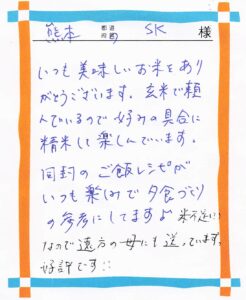 熊本 都道府県 SK 様
いつも美味しいお米をあり
がとうございます。玄米で頼
んでいるので好みの具合に
精米して楽しんでいます。
同封のご飯レシピが
いつも楽しみで夕食づくり
の参考にしてますよ
なので遠方の母にも送っています。
好評です!!